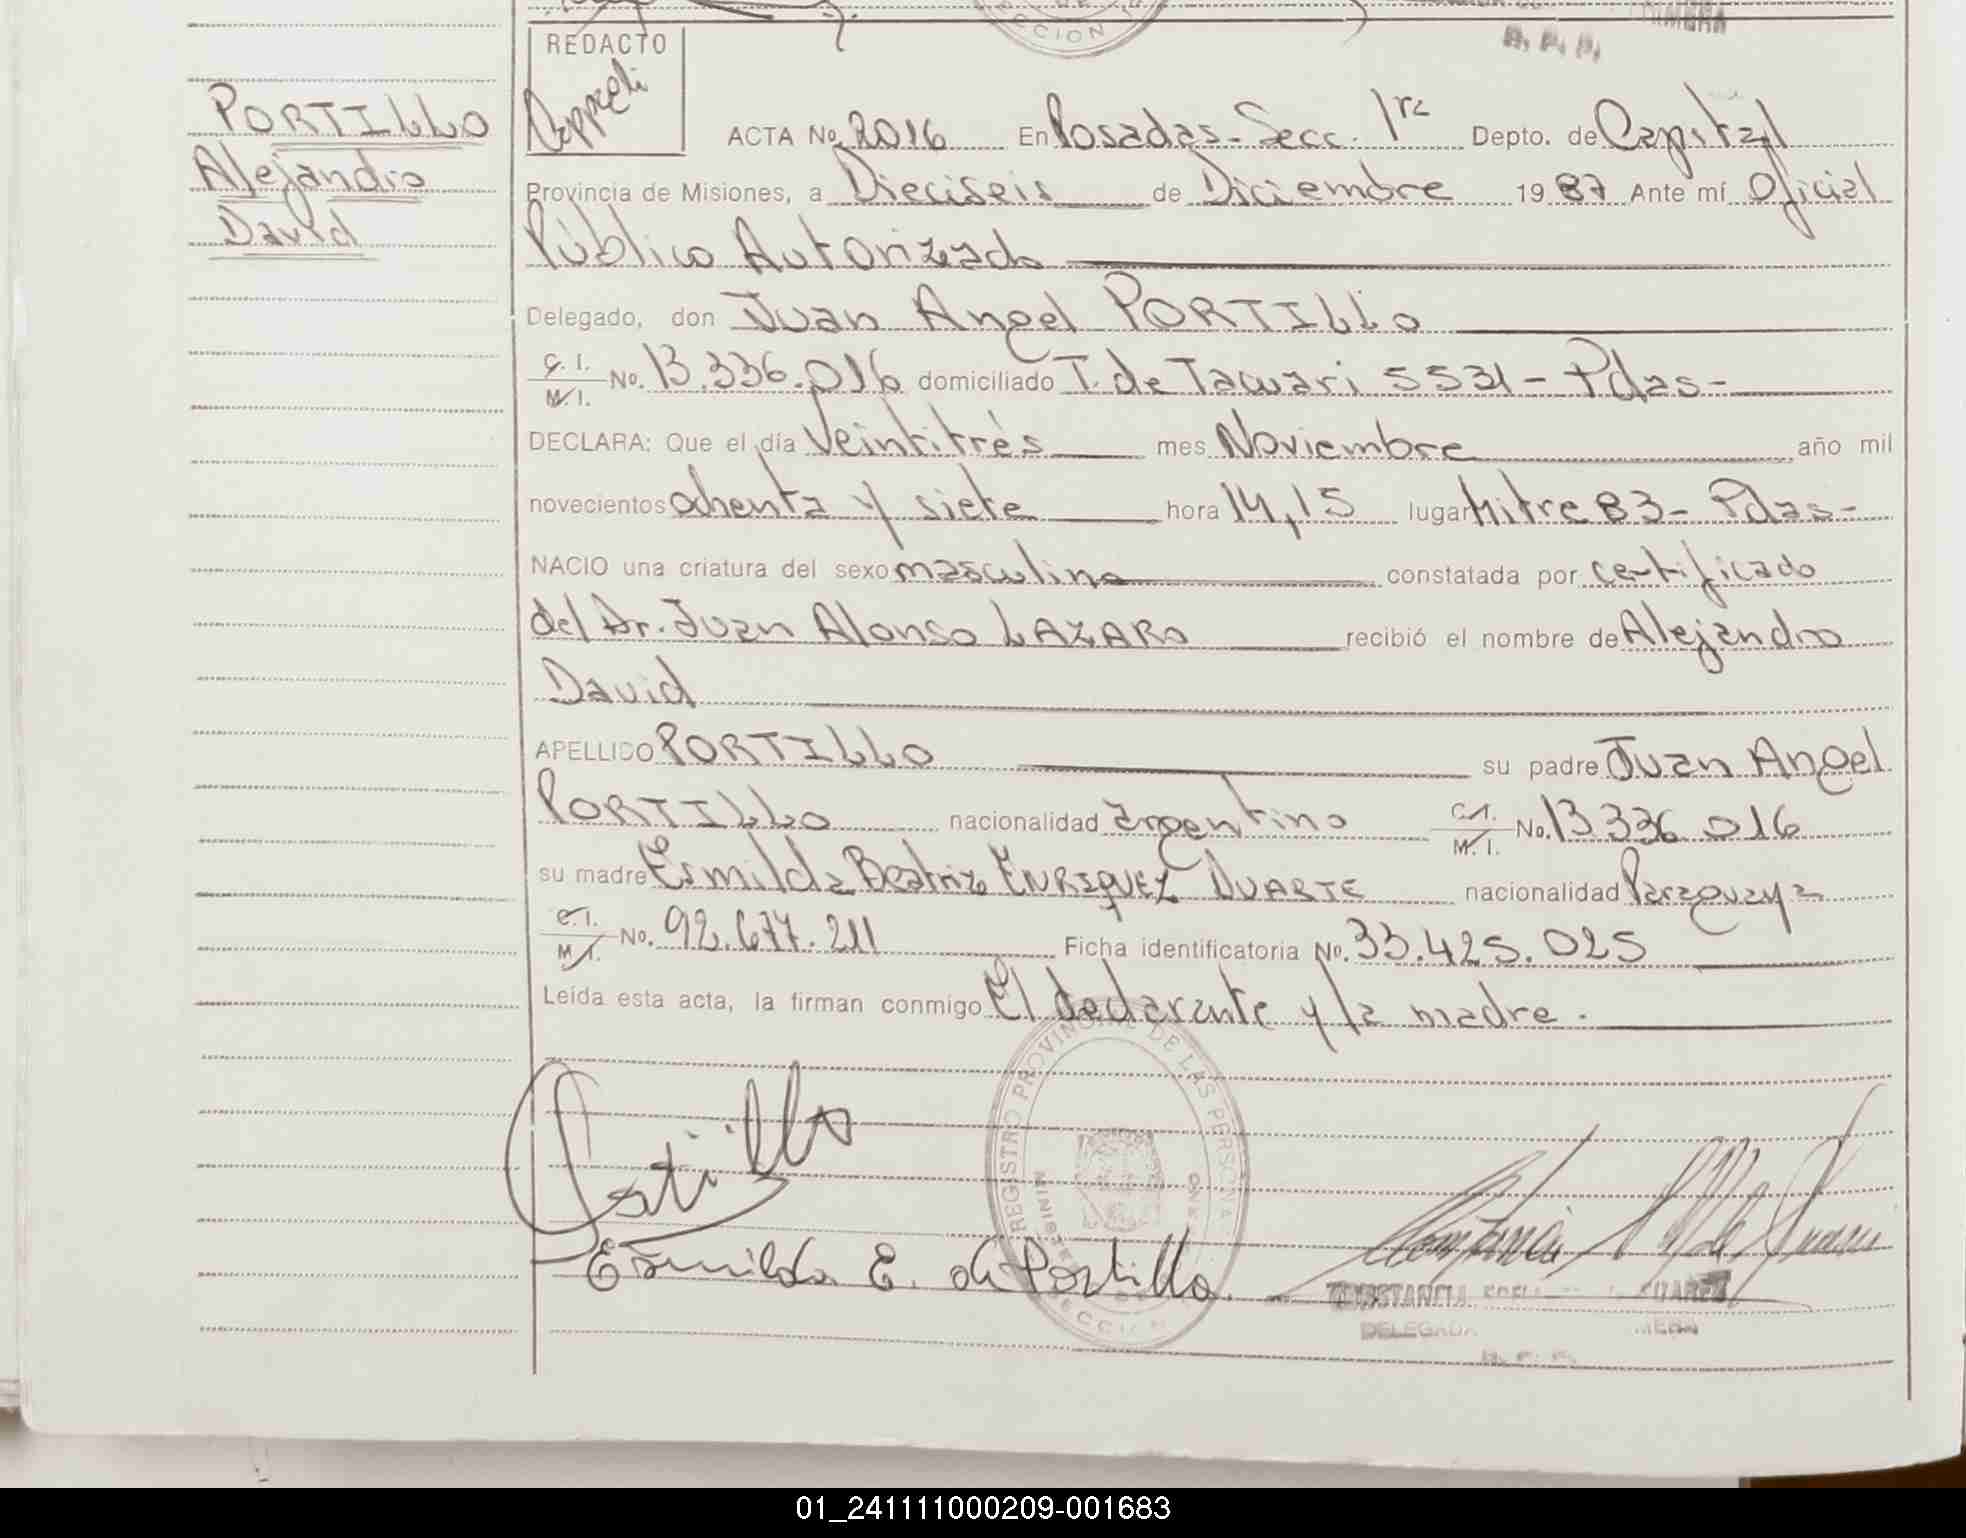 REDACTO
PORTILLO
Alejandro
David
ACTA No. 2016 En Posadas - Secc. 1ra Depto. de Capital
Provincia de Misiones, a Dieciseis de Diciembre 1987 Ante mí Oficial
Público Autorizado
Delegado, don Juan Angel PORTILLO
C. I. M. I. No. 13.336.016 domiciliado T. de Tacuari 5531 - Pdas -
DECLARA: Que el día Veintitrés mes Noviembre año mil
novecientos ochenta y siete hora 14,15 lugar Mitre 83 - Pdas -
NACIO una criatura del sexo masculino constatada por certificado
del Dr. Juan Alonso LAZARO recibió el nombre de Alejandro
David
APELLIDO PORTILLO su padre Juan Angel
PORTILLO nacionalidad argentino C.I. M. I. No. 13.336.016
su madre Esmilda Beatriz ENRIQUEZ DUARTE nacionalidad Paraguaya
C.I. M.I. No. 92.677.211 Ficha identificatoria No. 33.425.025
Leída esta acta, la firman conmigo El declarante y la madre.
REGISTRO PROVINCIAL DE LAS PERSONAS
Portillo
Esmilda E. de Portillo.
DELEGADA
01_241111000209-001683